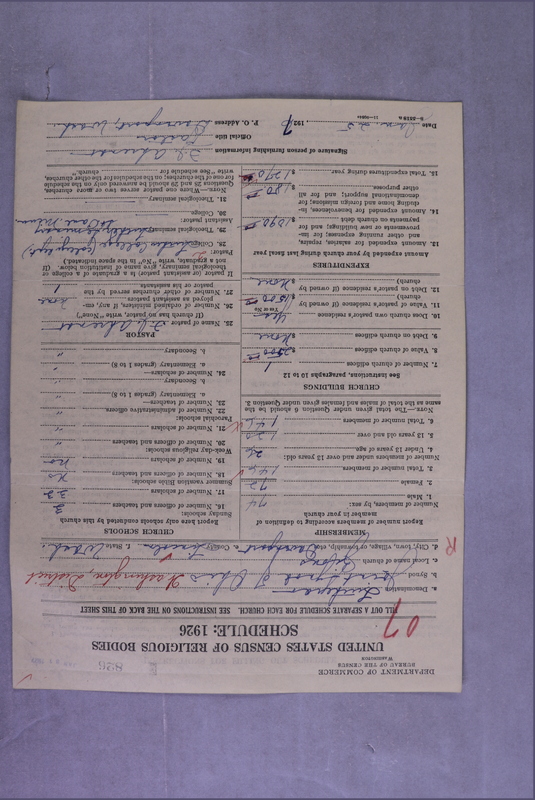 DEPARTMENT OF COMMERCE
BUREAU OF THE CENSUS
WASHINGTON
UNITED STATES CENSUS OF RELIGIOUS BODIES
SCHEDULE: 1926
FILL OUT A SEPARATE SCHEDULE FOR EACH CHURCH. SEE INSTRUCTIONS ON THE BACK OF THIS SHEET
a. Denomination Lutheran
b. Synod Joint Synod of Ohio Washington District
c. Local name of church
d. City, town, village, or township Davenport e. County Lincoln f. State Wash.
MEMBERSHIP
Report number of members according to definition of member in your church
Number of members, by sex:
1. Male 74
2. Female 72
3. Total number of members 146
Number of members under and over 13 years old:
4. Under 13 years of age 26
5. 13 years old and over 120
6. Total, number of members 146
NOTE.—The total given under Question 6 should be the same as the total of males and females given under Question 3.
CHURCH BUILDINGS
See instructions, paragraphs 10 to 12
7. Number of church edifices 1
8. Value of church edifices $
9. Debt on church edifices $ None
10. Does church own pastor's residence Yes
Yes or No
11. Value of pastor's residence (if owned by church) $ 1500
12. Debt on pastor's residence (if owned by church) $ None
EXPENDITURES
Amount expended by your church during last fiscal year
13. Amount expended for salaries, repairs, and other running expenses; for improvements or new buildings; and for payments on church debt $ 1090
14. Amount expended for benevolences, including home and foreign missions; for denominational support; and for all other purposes $ 180
15. Total expenditures during year $ 1270
CHURCH SCHOOLS
Report here only schools conducted by this church
Sunday schools:
16. Number of officers and teachers 3
17. Number of scholars 33
Summer vacation Bible schools:
18. Number of officers and teachers no
19. Number of scholars no
Week-day religious schools:
20. Number of officers and teachers "
21. Number of scholars "
Parochial schools:
22. Number of administrative officers "
23. Number of teachers—
a. Elementary (grades 1 to 8) "
b. Secondary "
24. Number of scholars—
a. Elementary (grades 1 to 8) "
b. Secondary "
PASTOR
25. Name of pastor
(If church has no pastor, write "None")
26. Number of ordained ministers, if any, employed as assistant pastors none
27. Number of other churches served by the pastor or his assistants 1
If pastor or assistant pastor is a graduate of a college or theological seminary, give name of institution below. (If not a graduate, write "No" in the space indicated.)
Pastor:
28. College
29. Theological seminary Luther Seminary St Paul Minn
Assistant pastor:
30. College
31. Theological seminary
NOTE.—Where one pastor serves two or more churches, Questions 28 and 29 should be answered only on the schedule for one of the churches; on the schedules for the other churches, write "See schedule for church."
Signature of person furnishing information
Official title Pastor
P. O. Address Davenport, Wash.
Date Jan. 25, 1927